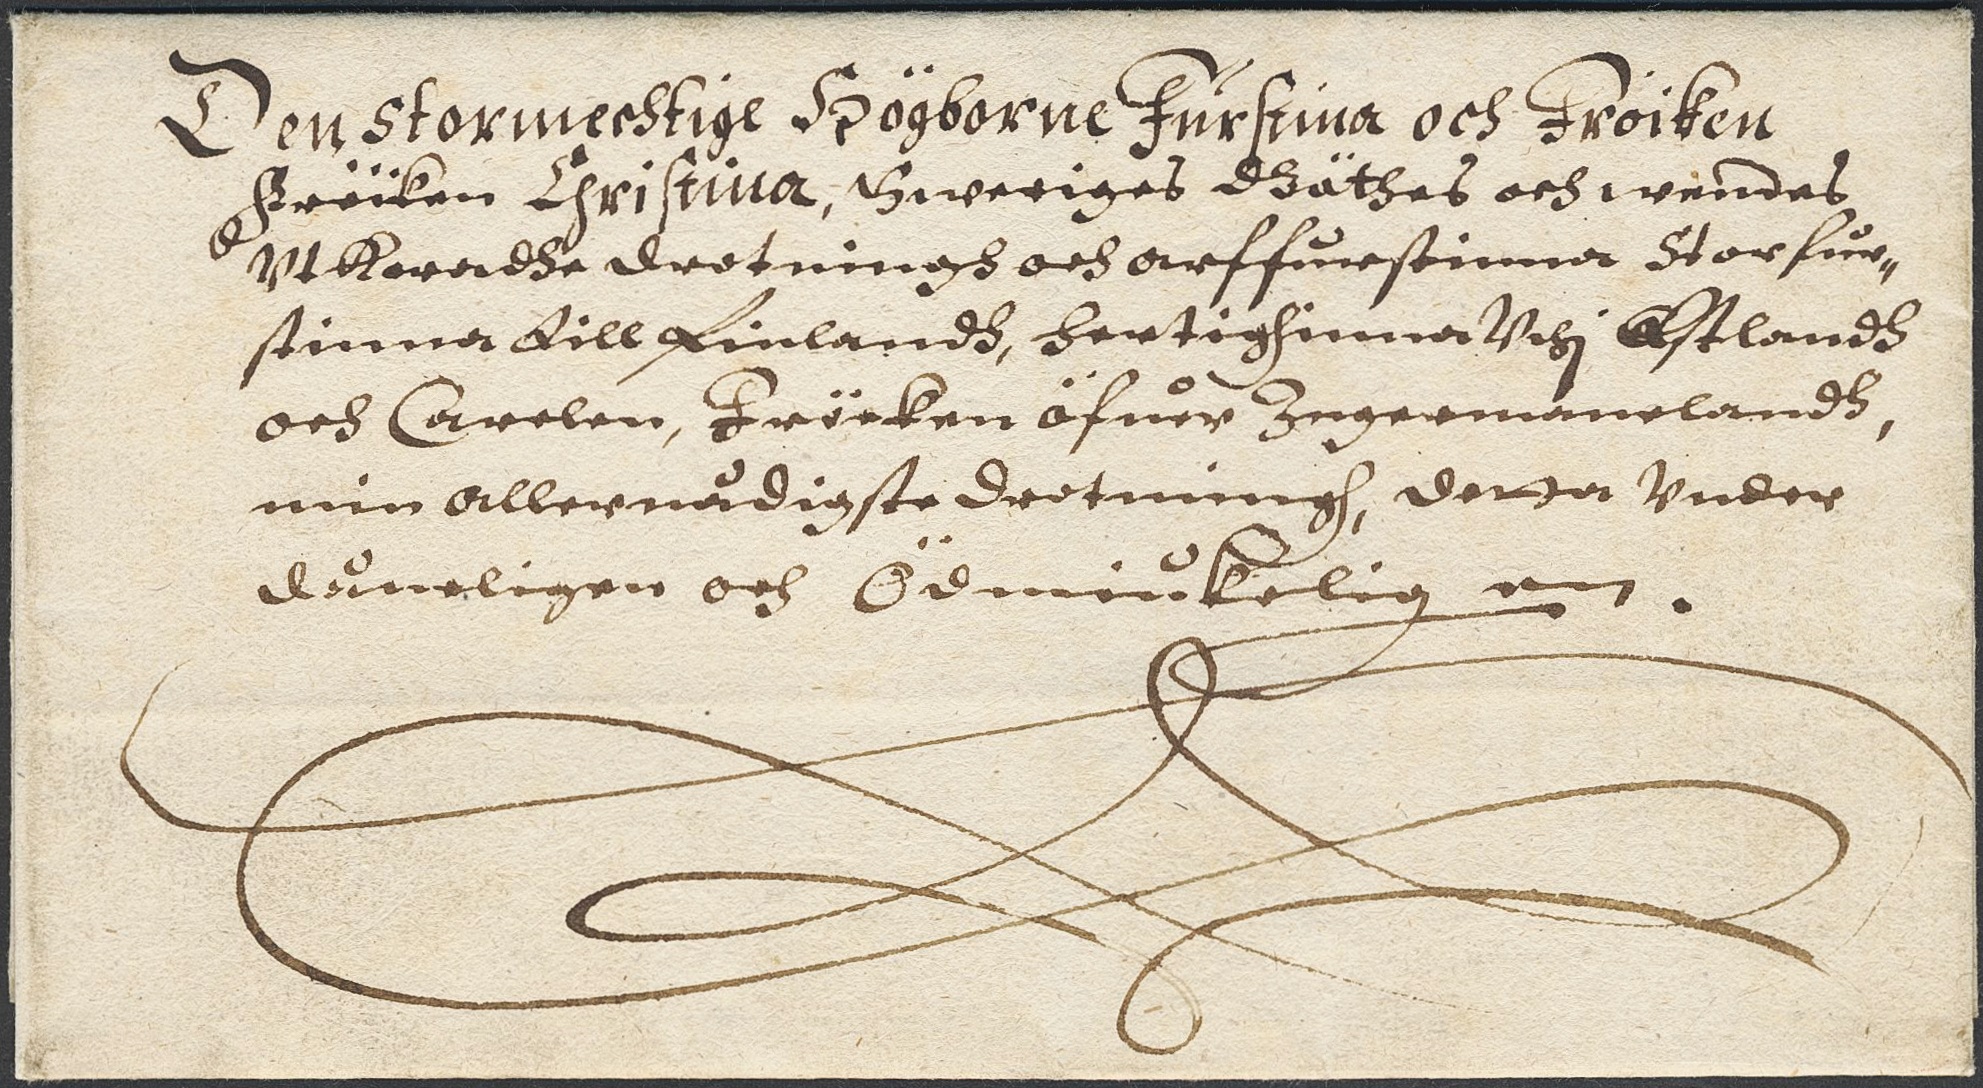 Den Stormechtige Högborne Furstinna och Fröiken
Fröiken Christina, Sweriges Göthes och wendes
Vtkoradhe drotningh och arffurstinna Storfur„
stinna till Finlandh, hertighinna Vthj Estlandh
och Carelen, Fröeken öfuer Ingermanelandh,
min allernådigste drotningh, detta Vnder
dåneligen och Ödmiukeligen.